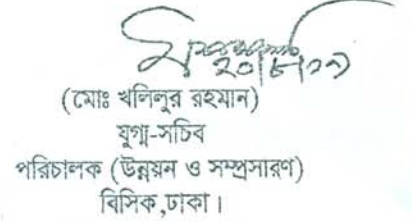 (মোঃ খলিলুর রহমান)
যুগ্ম-সচিব
পরিচালক (উন্নয়ন ও সম্প্রসারণ)
বিসিক,ঢাকা।